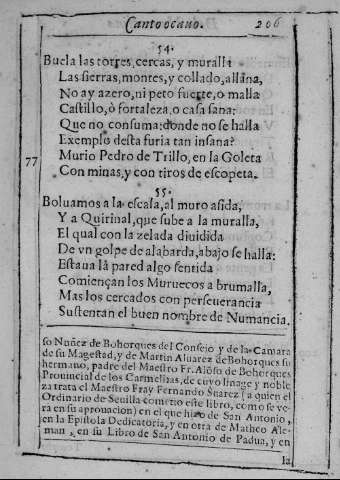 Canto octauo. 206
54.
Buela las torres, cercas, y muralla
Las sierras, montes, y collado, allana,
No ay azero, ni peto fuerte, o malla
Castillo, ò fortaleza, o casa sana:
Que no consuma: donde no se halla
Exemplo desta furia tan insana?
77 Murio Pedro de Trillo, en la Goleta
Con minas, y con tiros de escopeta.
55.
Boluamos a la escala, al muro asida,
Y a Quirinal, que sube a la muralla,
El qual con la zelada diuidida
De vn golpe de alabarda, abajo se halla:
Estaua la pared algo sentida
Comiençan los Muruecos a brumalla,
Mas los cercados con perseuerancia
Sustentan el buen nombre de Numancia.
so Nuñez de Bohorques del Consejo y de la Camara
de su Magestad, y de Martin Aluarez de Bohorques su
hermano, padre del Maestro Fr. Alõso de Bohorques
Prouincial de los Carmelitas, de cuyo linage y noble
za trata el Maestro Fray Fernando Suarez (a quien el
Ordinario de Seuilla cometio este libro, como se ve-
ra en su aprouacion) en el que hizo de San Antonio,
en la Epistola Dedicatoria, y en otra de Matheo Ale-
man, en su Libro de San Antonio de Padua, y en
la